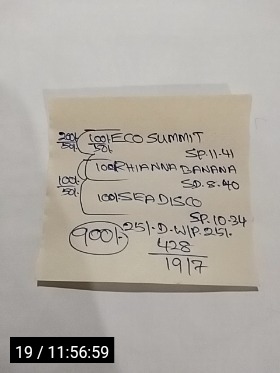 200/- 100/- ECO SUMMIT
50/- 50/-
SP.11.41
100/- RHIANNA BANANA
SP.8.40
100/-
50/- 100/- SEA DISCO
SP.10.34
900/- 25/-D.W/P.25/-
428
1917
19 / 11:56:59